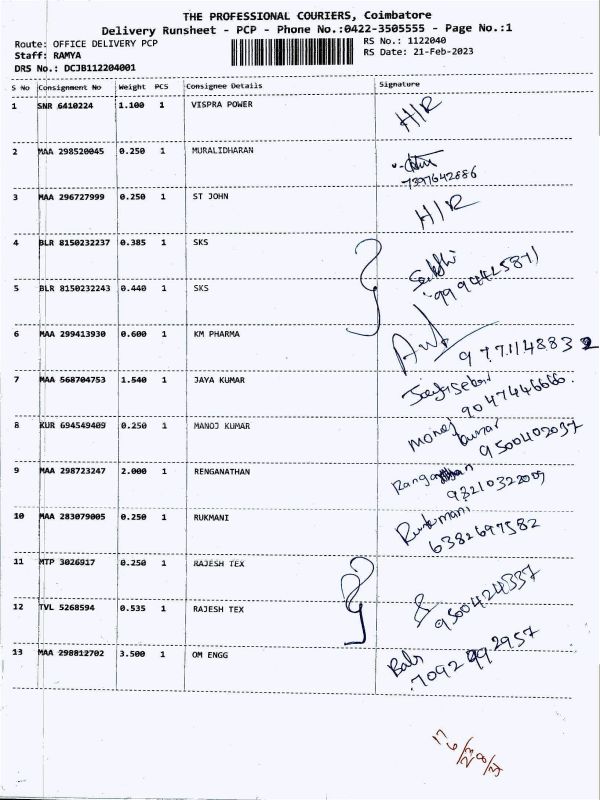 THE PROFESSIONAL COURIERS, Coimbatore
Delivery Runsheet - PCP - Phone No.:0422-3505555 - Page No.:1
Route: OFFICE DELIVERY PCP
RS No.: 1122040
Staff: RAMYA
RS Date: 21-Feb-2023
DRS No.: DCJB112204001
S No Consignment No Weight PCS Consignee Details Signature
1 SNR 6410224 1.100 1 VISPRA POWER H/R
2 MAA 298520045 0.250 1 MURALIDHARAN
7397642886
3 MAA 296727999 0.250 1 ST JOHN H/R
4 BLR 8150232237 0.385 1 SKS
5 BLR 8150232243 0.440 1 SKS
6 MAA 299413930 0.600 1 KM PHARMA
7 MAA 568704753 1.540 1 JAYA KUMAR
9047446666.
8 KUR 694549409 0.250 1 MANOJ KUMAR Manoj kumar
9500402037
9 MAA 298723247 2.000 1 RENGANATHAN
10 MAA 283079005 0.250 1 RUKMANI Rukmani
6382697582
11 MTP 3026917 0.250 1 RAJESH TEX
12 TVL 5268594 0.535 1 RAJESH TEX
9500424337
13 MAA 298812702 3.500 1 OM ENGG Babu
7092992957